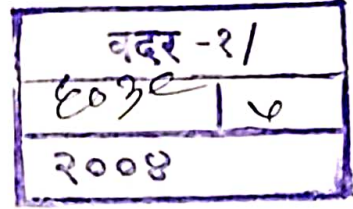 वदर -१/
६०३८ | ७
२००४